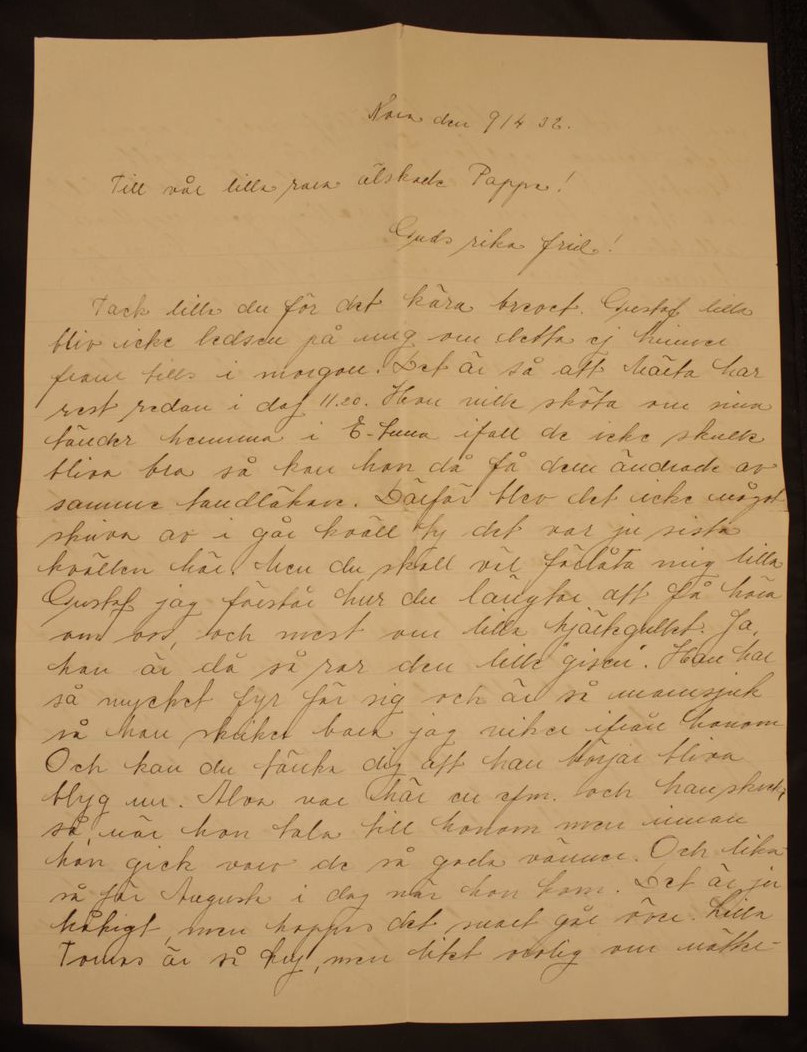 Nora den 9/4 32.
Till vår lilla rara älskade Pappa!
Guds rika frid!
Tack lilla du för det kära brevet. Gustaf lilla
bliv icke ledsen på mig om detta ej hinner
fram tills i morgon. Det är så att Märta har
rest redan i dag 11.20. Hon ville sköta om sina
tänder hemma i E-tuna ifall de icke skulle
bliva bra så kan hon då få dem ändrade av
samme tandläkare. Därför blev det icke något
skriva av i går kväll ty det var ju sista
kvällen här. Men du skall väl förlåta mig lilla
Gustaf jag förstår hur du längtar att få höra
om oss, och mest om lilla hjärtegullet. Ja,
han är då så rar den lille "grisen". Han har
så mycket fyr för sig och är så mamsjuk
så han skriker bara jag viker ifrån honom
Och kan du tänka dig att han börjar bliva
blyg nu. Alva var här en e.m. och han skrek,
så, när hon tala till honom men innan
hon gick voro de så goda vänner. Och lika-
så för Augusta i dag när hon kom. Det är ju
tråkigt, men hoppas det snart går över. Lilla
Tomas är så kry, men litet orolig om nätter-